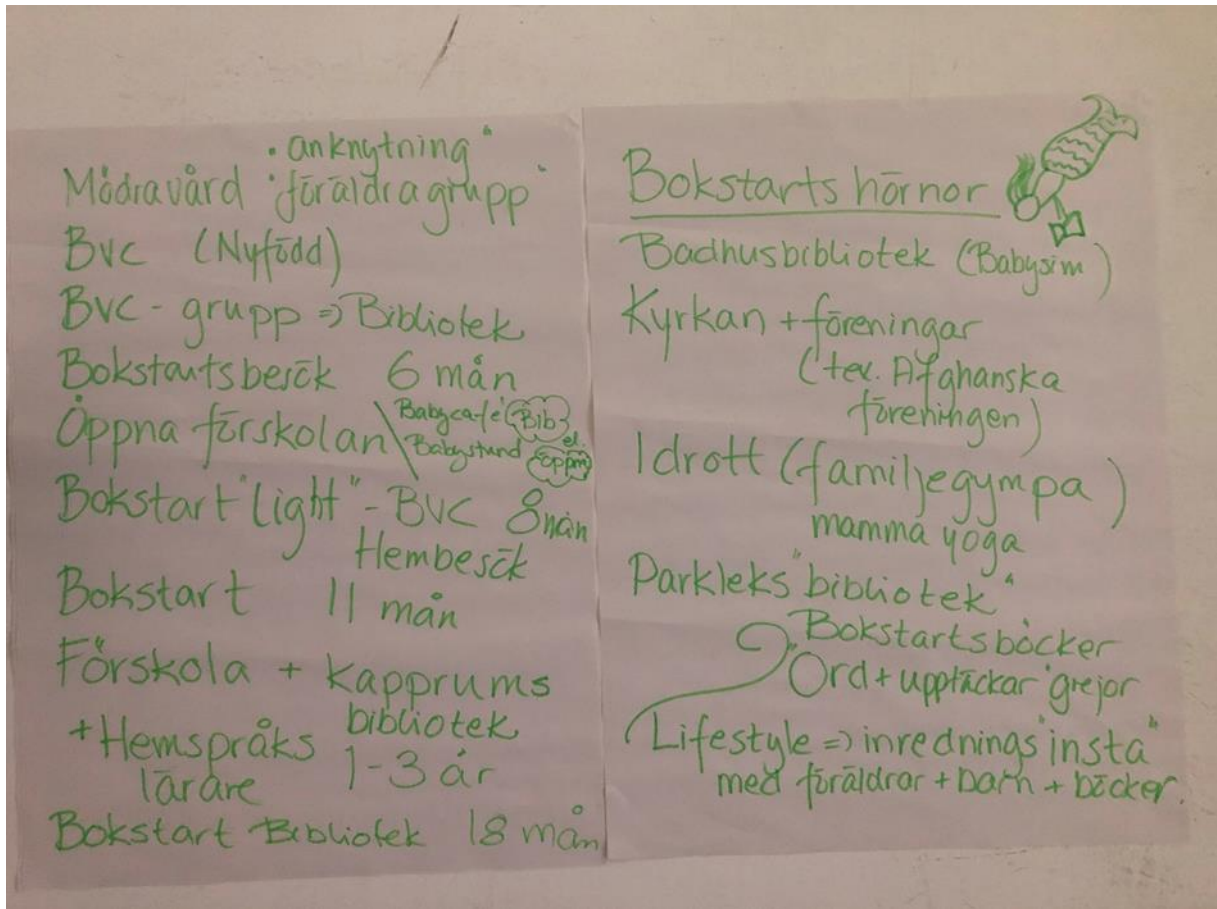 • anknytning"
Mödravård "föräldragrupp"
BVC (Nyfödd)
BVC - grupp => Bibliotek
Bokstartsbesök 6 mån
Öppna förskolan \ Babycafé Bib el.
Babystund öppn
Bokstart "light" - BVC 8 mån
Hembesök
Bokstart 11 mån
Förskola + kapprums
bibliotek
+ Hemspråks
lärare 1-3 år
Bokstart Bibliotek 18 mån
Bokstarts hörnor
Badhusbibliotek (Babysim)
Kyrkan + föreningar
(tex. Afghanska
föreningen)
Idrott (familjegympa)
mamma yoga
Parkleks "bibliotek"
Bokstartsböcker
Ord + upptäckar "grejor
Lifestyle => inrednings "insta"
med föräldrar + barn + böcker.